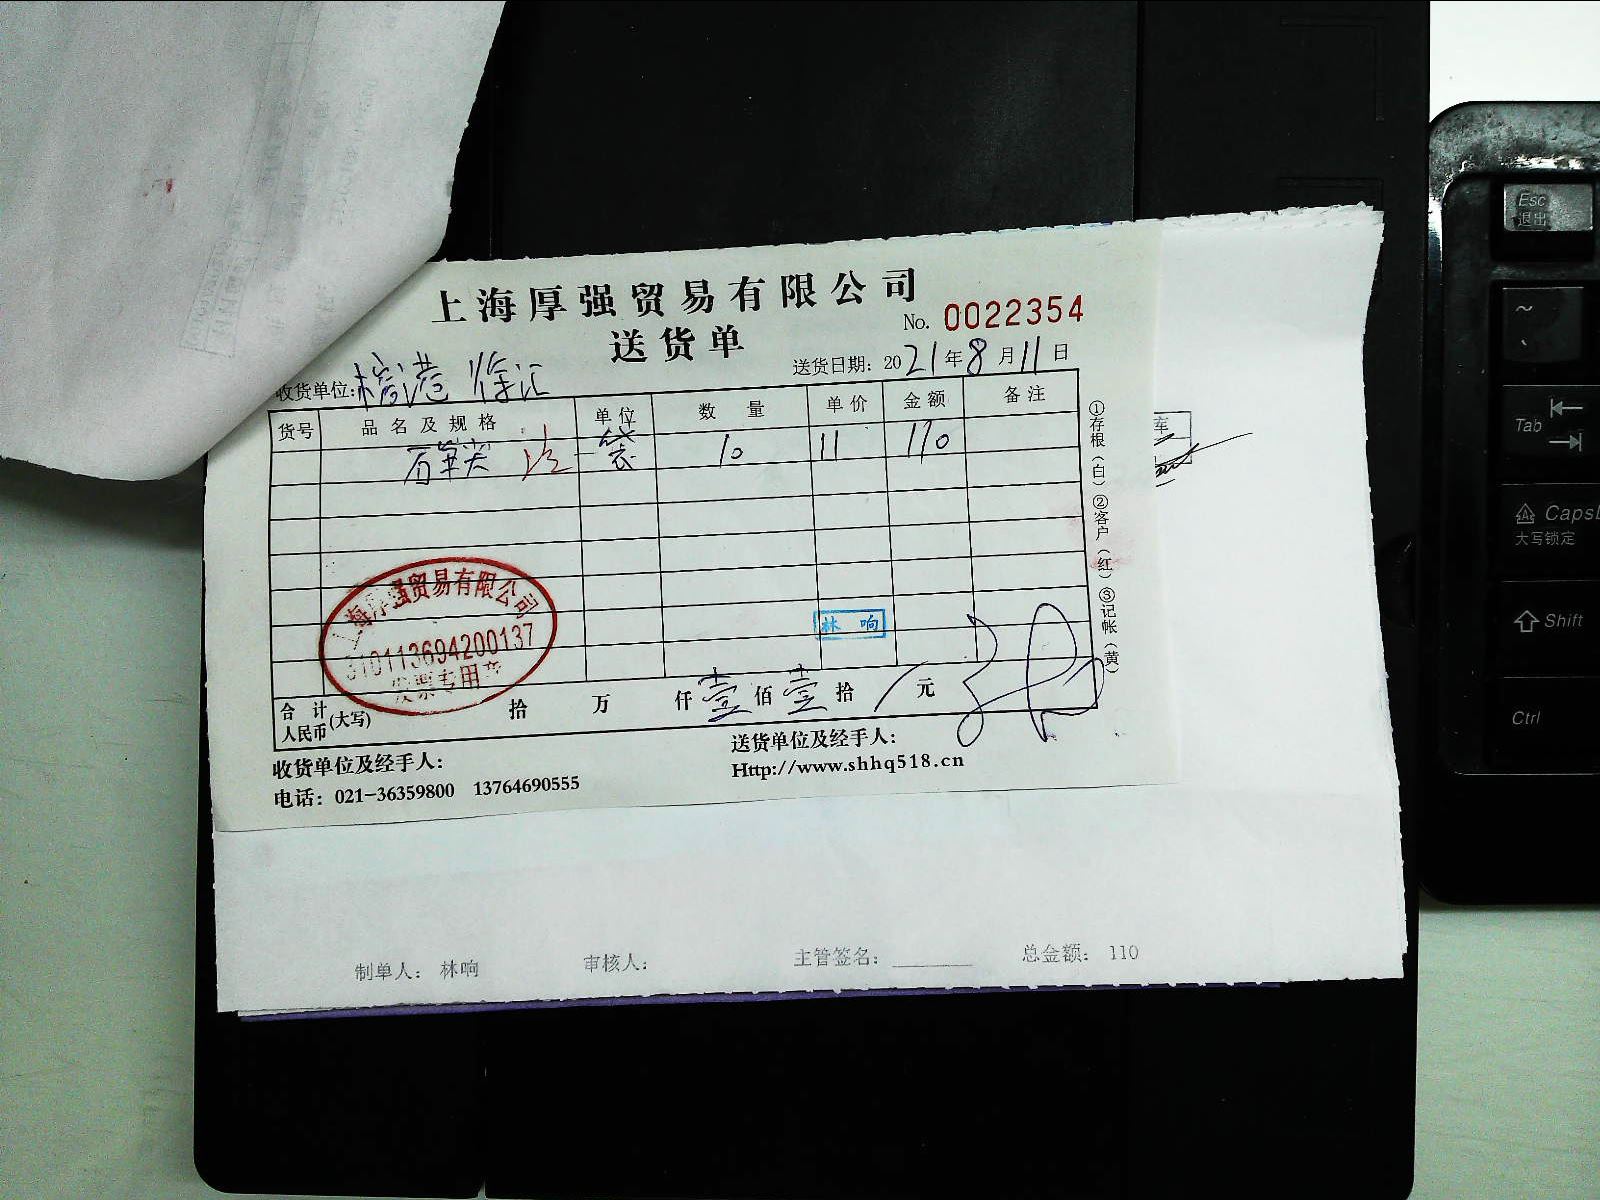 上海厚强贸易有限公司
送货单
No. 0022354
收货单位: 徐汇
送货日期: 2021年8月11日
货号 品名及规格 单位 数量 单价 金额 备注
袋 10 11 110
①存根(白) ②客户(红) ③记帐(黄)
上海厚强贸易有限公司
310113694200137
发票专用章
林 响
合计
人民币(大写) 拾 万 仟 壹 佰 壹 拾 / 元
收货单位及经手人:
送货单位及经手人:
电话: 021-36359800 13764690555
Http://www.shhq518.cn
库
制单人: 林响 审核人: 主管签名: 总金额: 110
Esc
退出
~
Tab
Caps
大写锁定
Shift
Ctrl